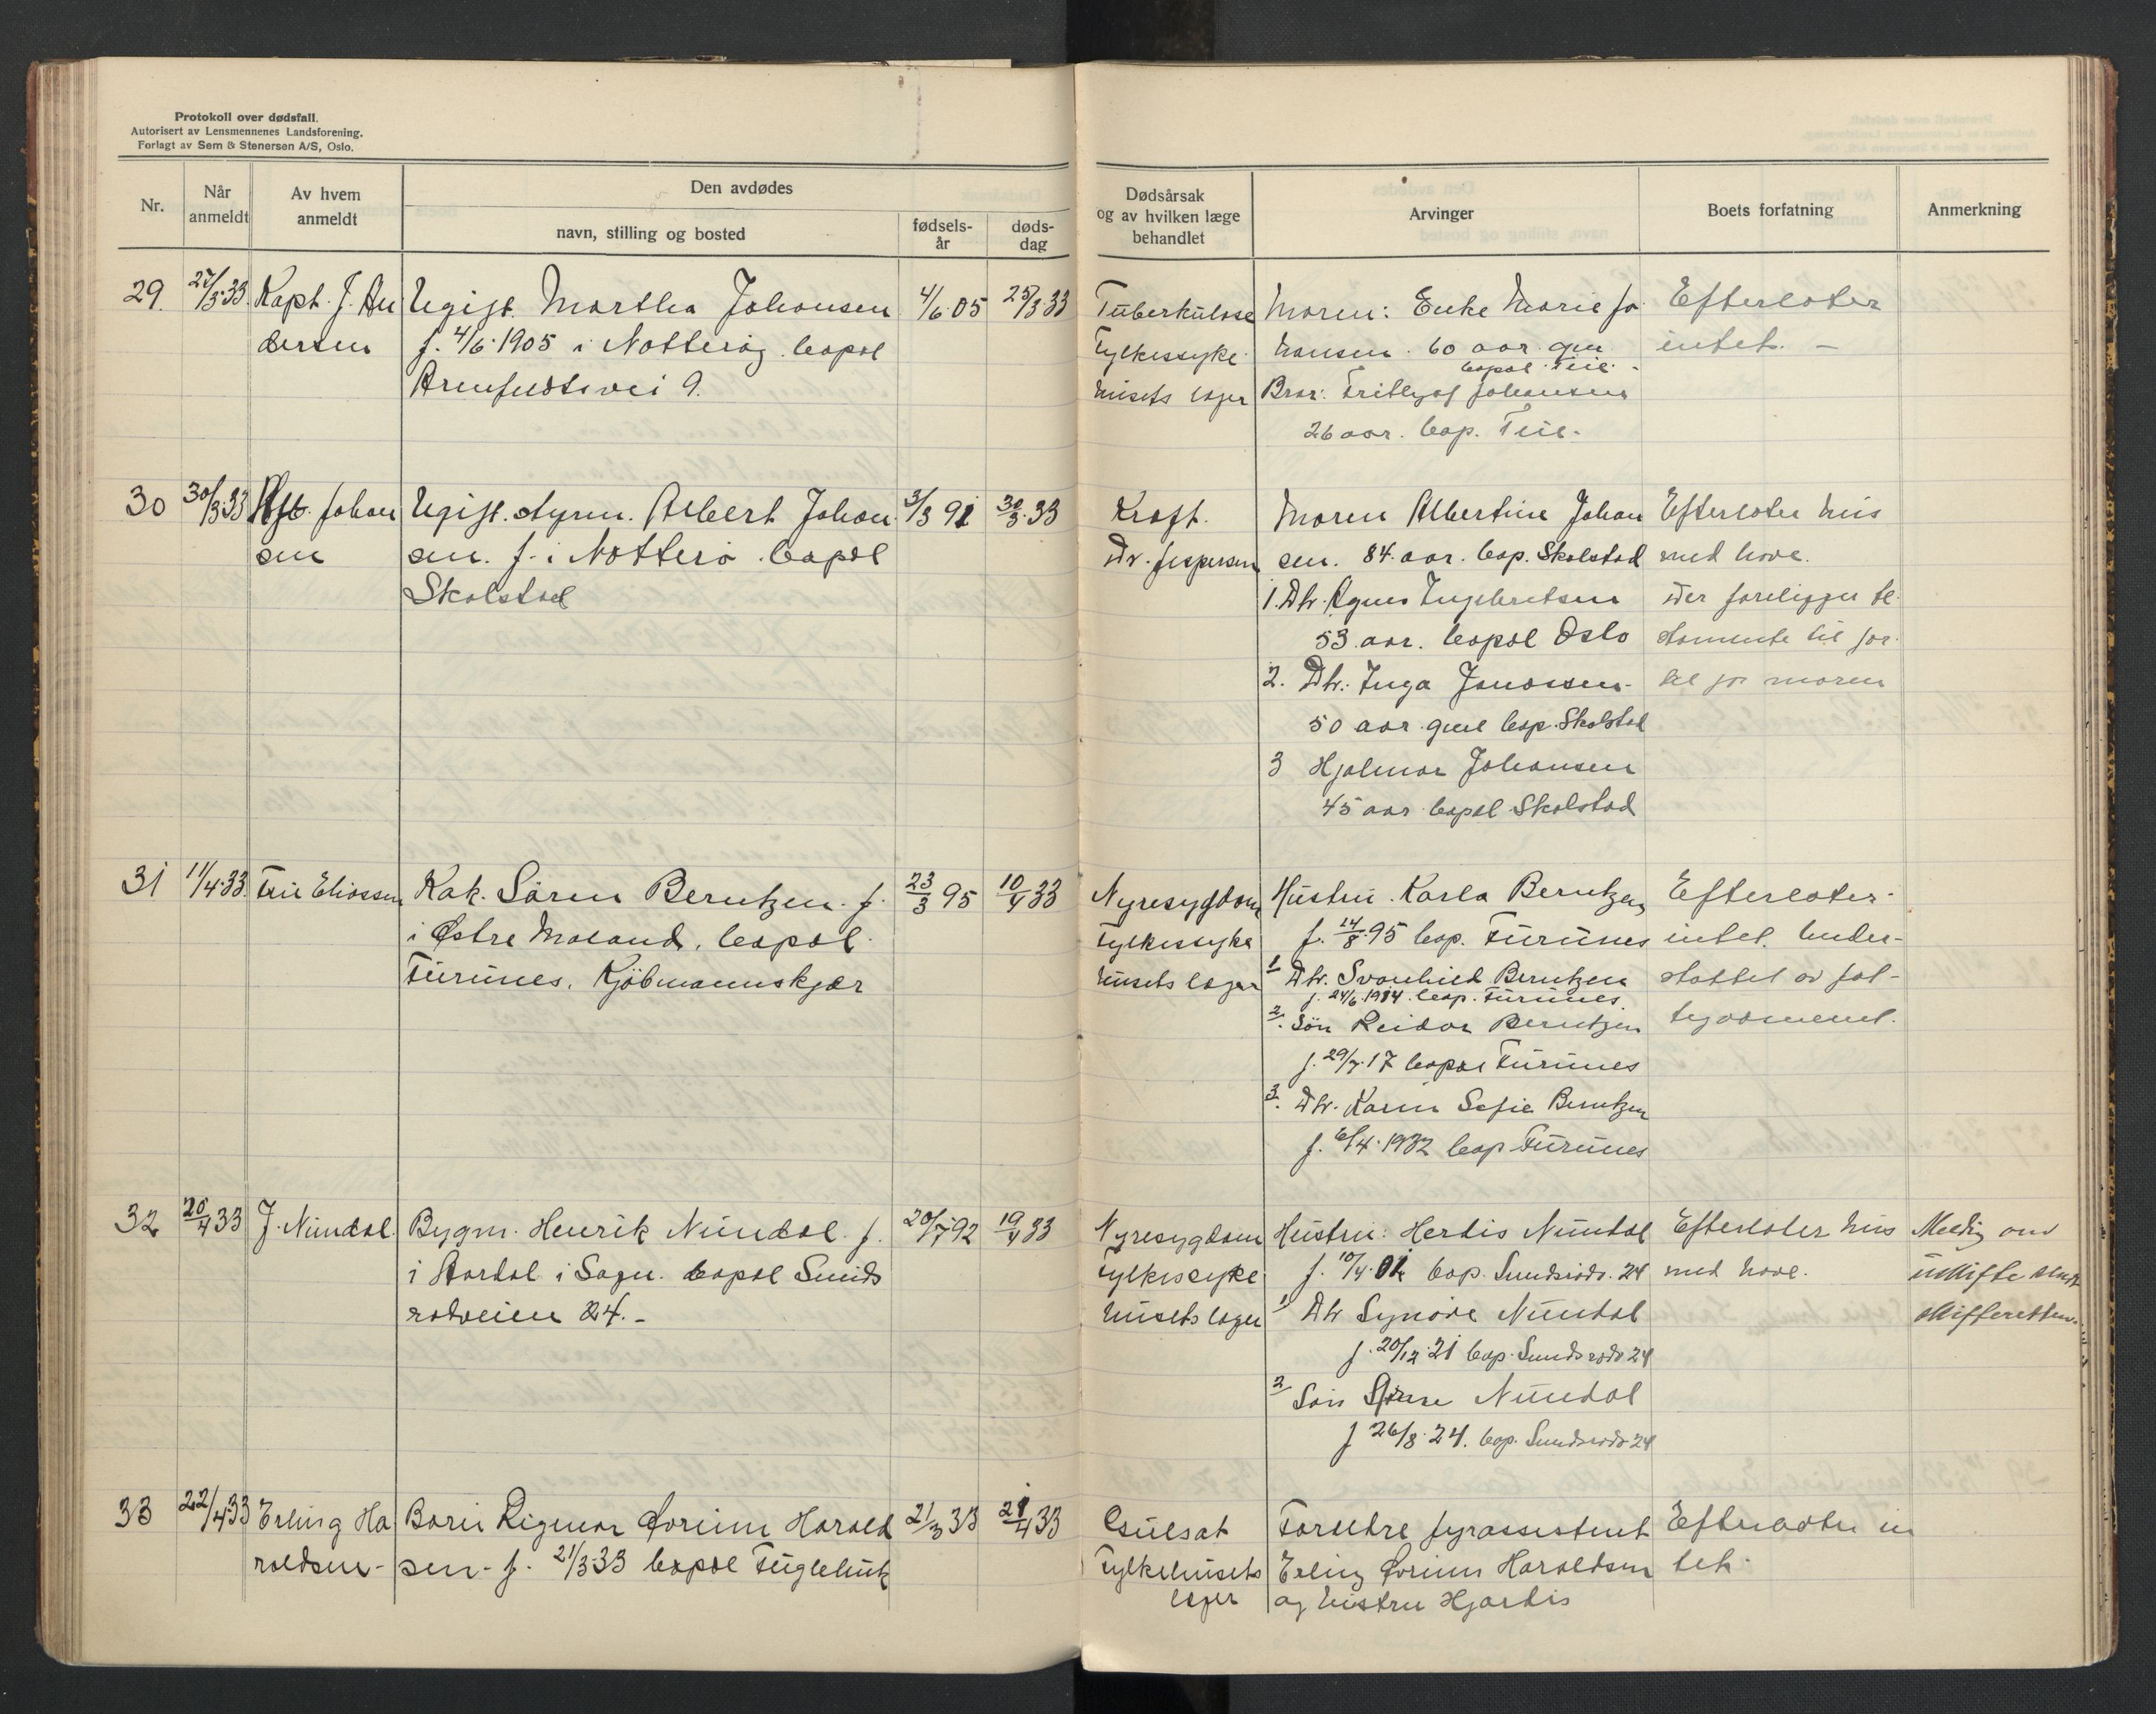 Protokoll over dødsfall.
Autorisert av Lensmennenes Landsforening.
Forlagt av Sem & Stenersen A/S, Oslo.
Nr.
Når
anmeldt
Av hvem
anmeldt
Den avdødes
navn, stilling og bosted
fødsels-
år
døds-
dag
Dødsårsak
og av hvilken læge
behandlet
Arvinger
Boets forfatning
Anmerkning
29.
27/3 33
Kapt. J. An
dersen
Ugift Martha Johansen
f. 4/6 1905 i Nøtterøy bopæl
vei 9.
4/6 05
25/3 33
Tuberkulose
Fylkessyke
husets læger
Moren: Enke Marie Jo
hansen. 60 aar. gml
bopæl Teie.
Bror: Frithjof Johansen
26 aar. bop. Teie.
Efterlater
intet. -
30
30/3 33
Johan
sen
Ugift. styrm. Albert Johan
sen. f. i Nøtterø. bopæl
Skalstad
3/3 91
30/3 33
Kræft.
Dr. Jespersen
Moren Albertine Johan
sen. 84 aar. bop. Skalstad
1. Dtr. Agnes Ingebretsen
53 aar. bopæl Oslo
2. Dtr. Inga
50 aar gml bop. Skalstad
3 Hjalmar Johansen
45 aar bopæl Skalstad
Efterlater hus
med have.
Der foreligger te
stamente til for
del for moren
31
11/4 33.
Eliassen
Kok. Sören Berntzen. f.
i Østre Moland, bopæl
Furunes. Kjöbmannskjær
23/3 95
10/4 33
Nyresygdom
Fylkessyke
husets læger
Hustru. Karla Berntzen
f. 14/8 95 bop. Furunes
1 Dtr. Svanhild Berntzen
f. 24/6 1914. bop. Furunes
2. Sön Reidar Berntzen
f. 29/7 17 bopæl Furunes
3. Dtr. Karin Sofie Berntzen
f. 6/4 1932 bop Furunes
Efterlater
intet. Under-
støttet av fat-
32
20/4 33
J. Nundal.
Bygm. Henrik Nundal. f.
i Aardal i Sogn. bopæl Sunds
rødveien 24. -
20/7 92
19/4 33
Nyresygdom
Fylkessyke
husets læger
Hustru: Herdis Nundal
f. 10/4 bop. Sundsrødv. 24
1 Dtr Synöve Nundal
f. 20/12 21 bop. Sundsrødv 24
2 Sön Nundal
f 26/8 24. bop. Sundsrødv 24
Efterlater hus
med have.
Melding om
uskifte
skifteretten.
33
22/4 33
Erling Ha
raldsen -
Barn Rigmor Harald
sen - f. 21/3 33 bopæl Fuglehuk
21/3 33
21/4 33
Fylkehusets
læger
Foreldre fyrassistent
Erling Haraldsen
og hustru Hjørdis
Efterlater in
tet.